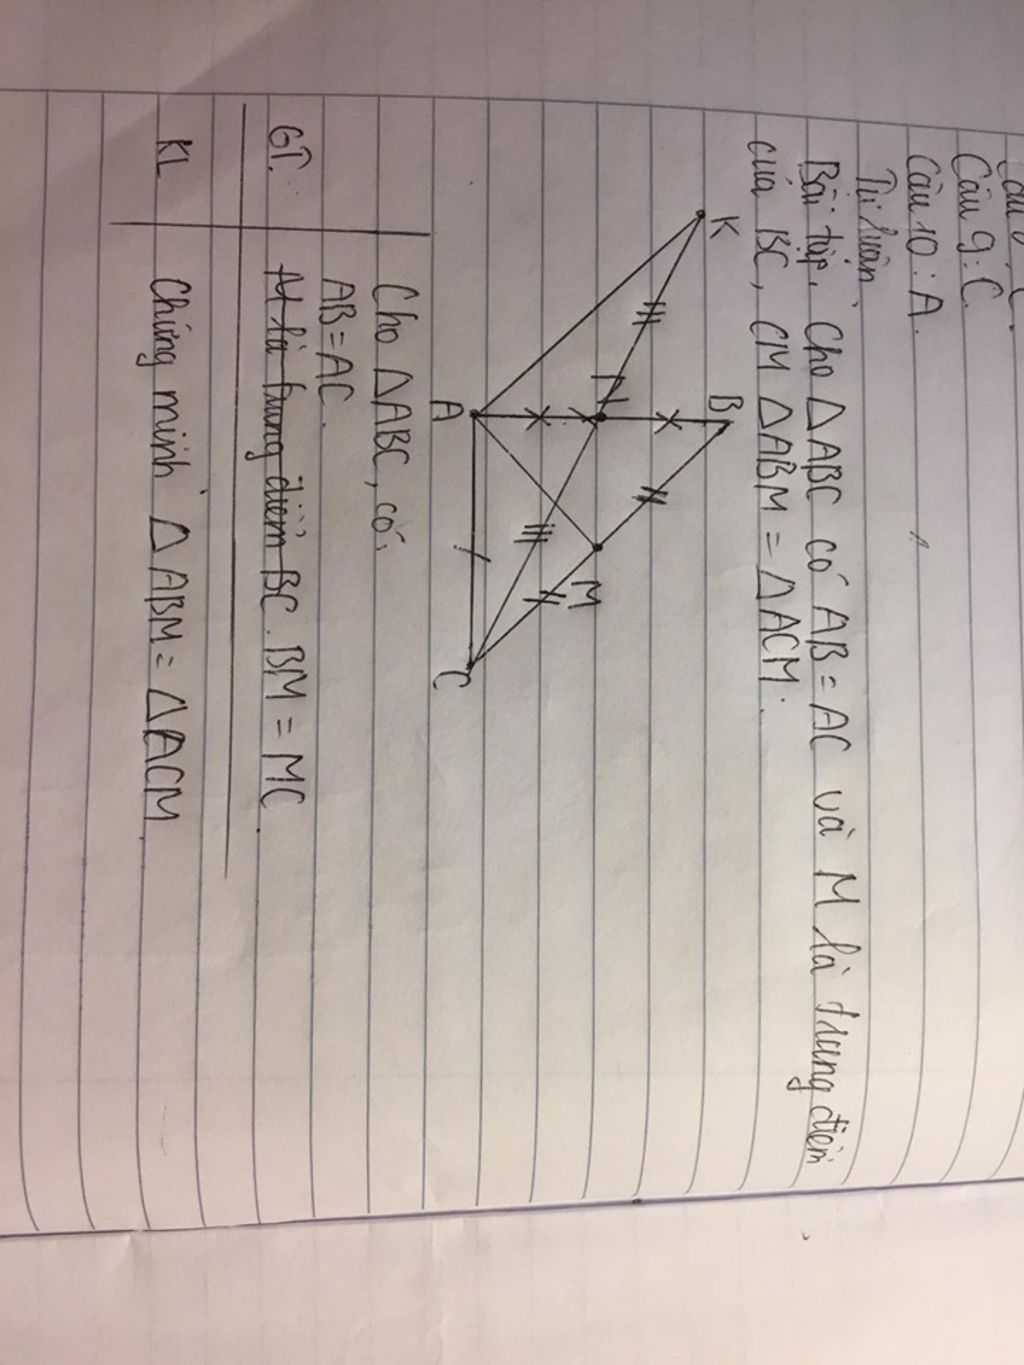 Câu 9: C.
Câu 10: A.
Tự luận
Bài tập. Cho △ABC có AB = AC và M là trung điểm
của BC, CM △ABM = △ACM.
K
B
N
M
A
C
Cho △ABC, có:
AB = AC.
GT. M là trung điểm BC. BM = MC.
KL Chứng minh △ABM = △ACM.